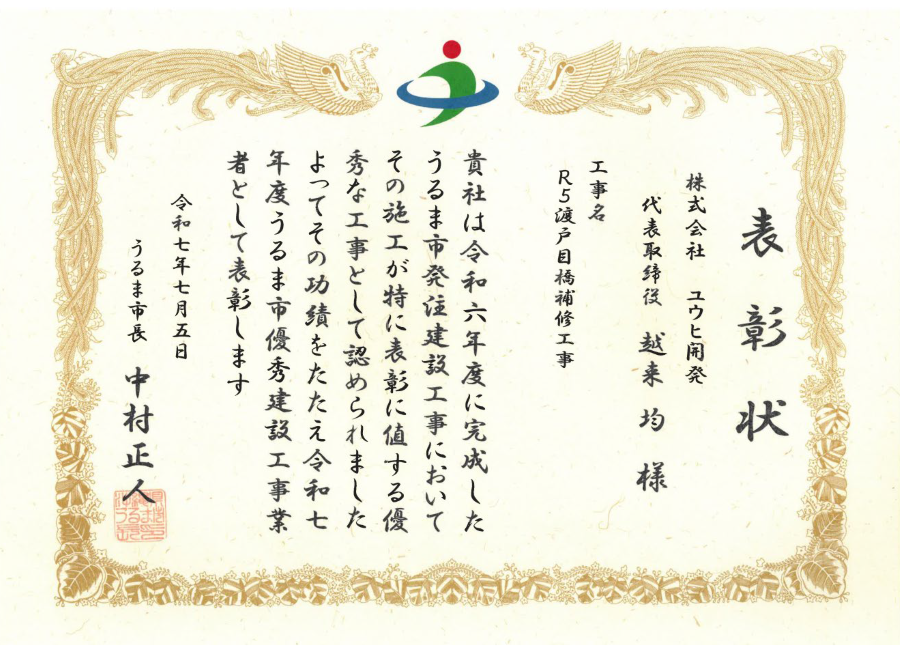 表彰状
株式会社 ユウヒ開発
代表取締役 越来 均 様
工事名
R5渡戸目橋補修工事
貴社は令和六年度に完成した
うるま市発注建設工事において
その施工が特に表彰に値する優
秀な工事として認められました
よってその功績をたたえ令和七
年度うるま市優秀建設工事業
者として表彰します
令和七年七月五日
うるま市長 中村正人